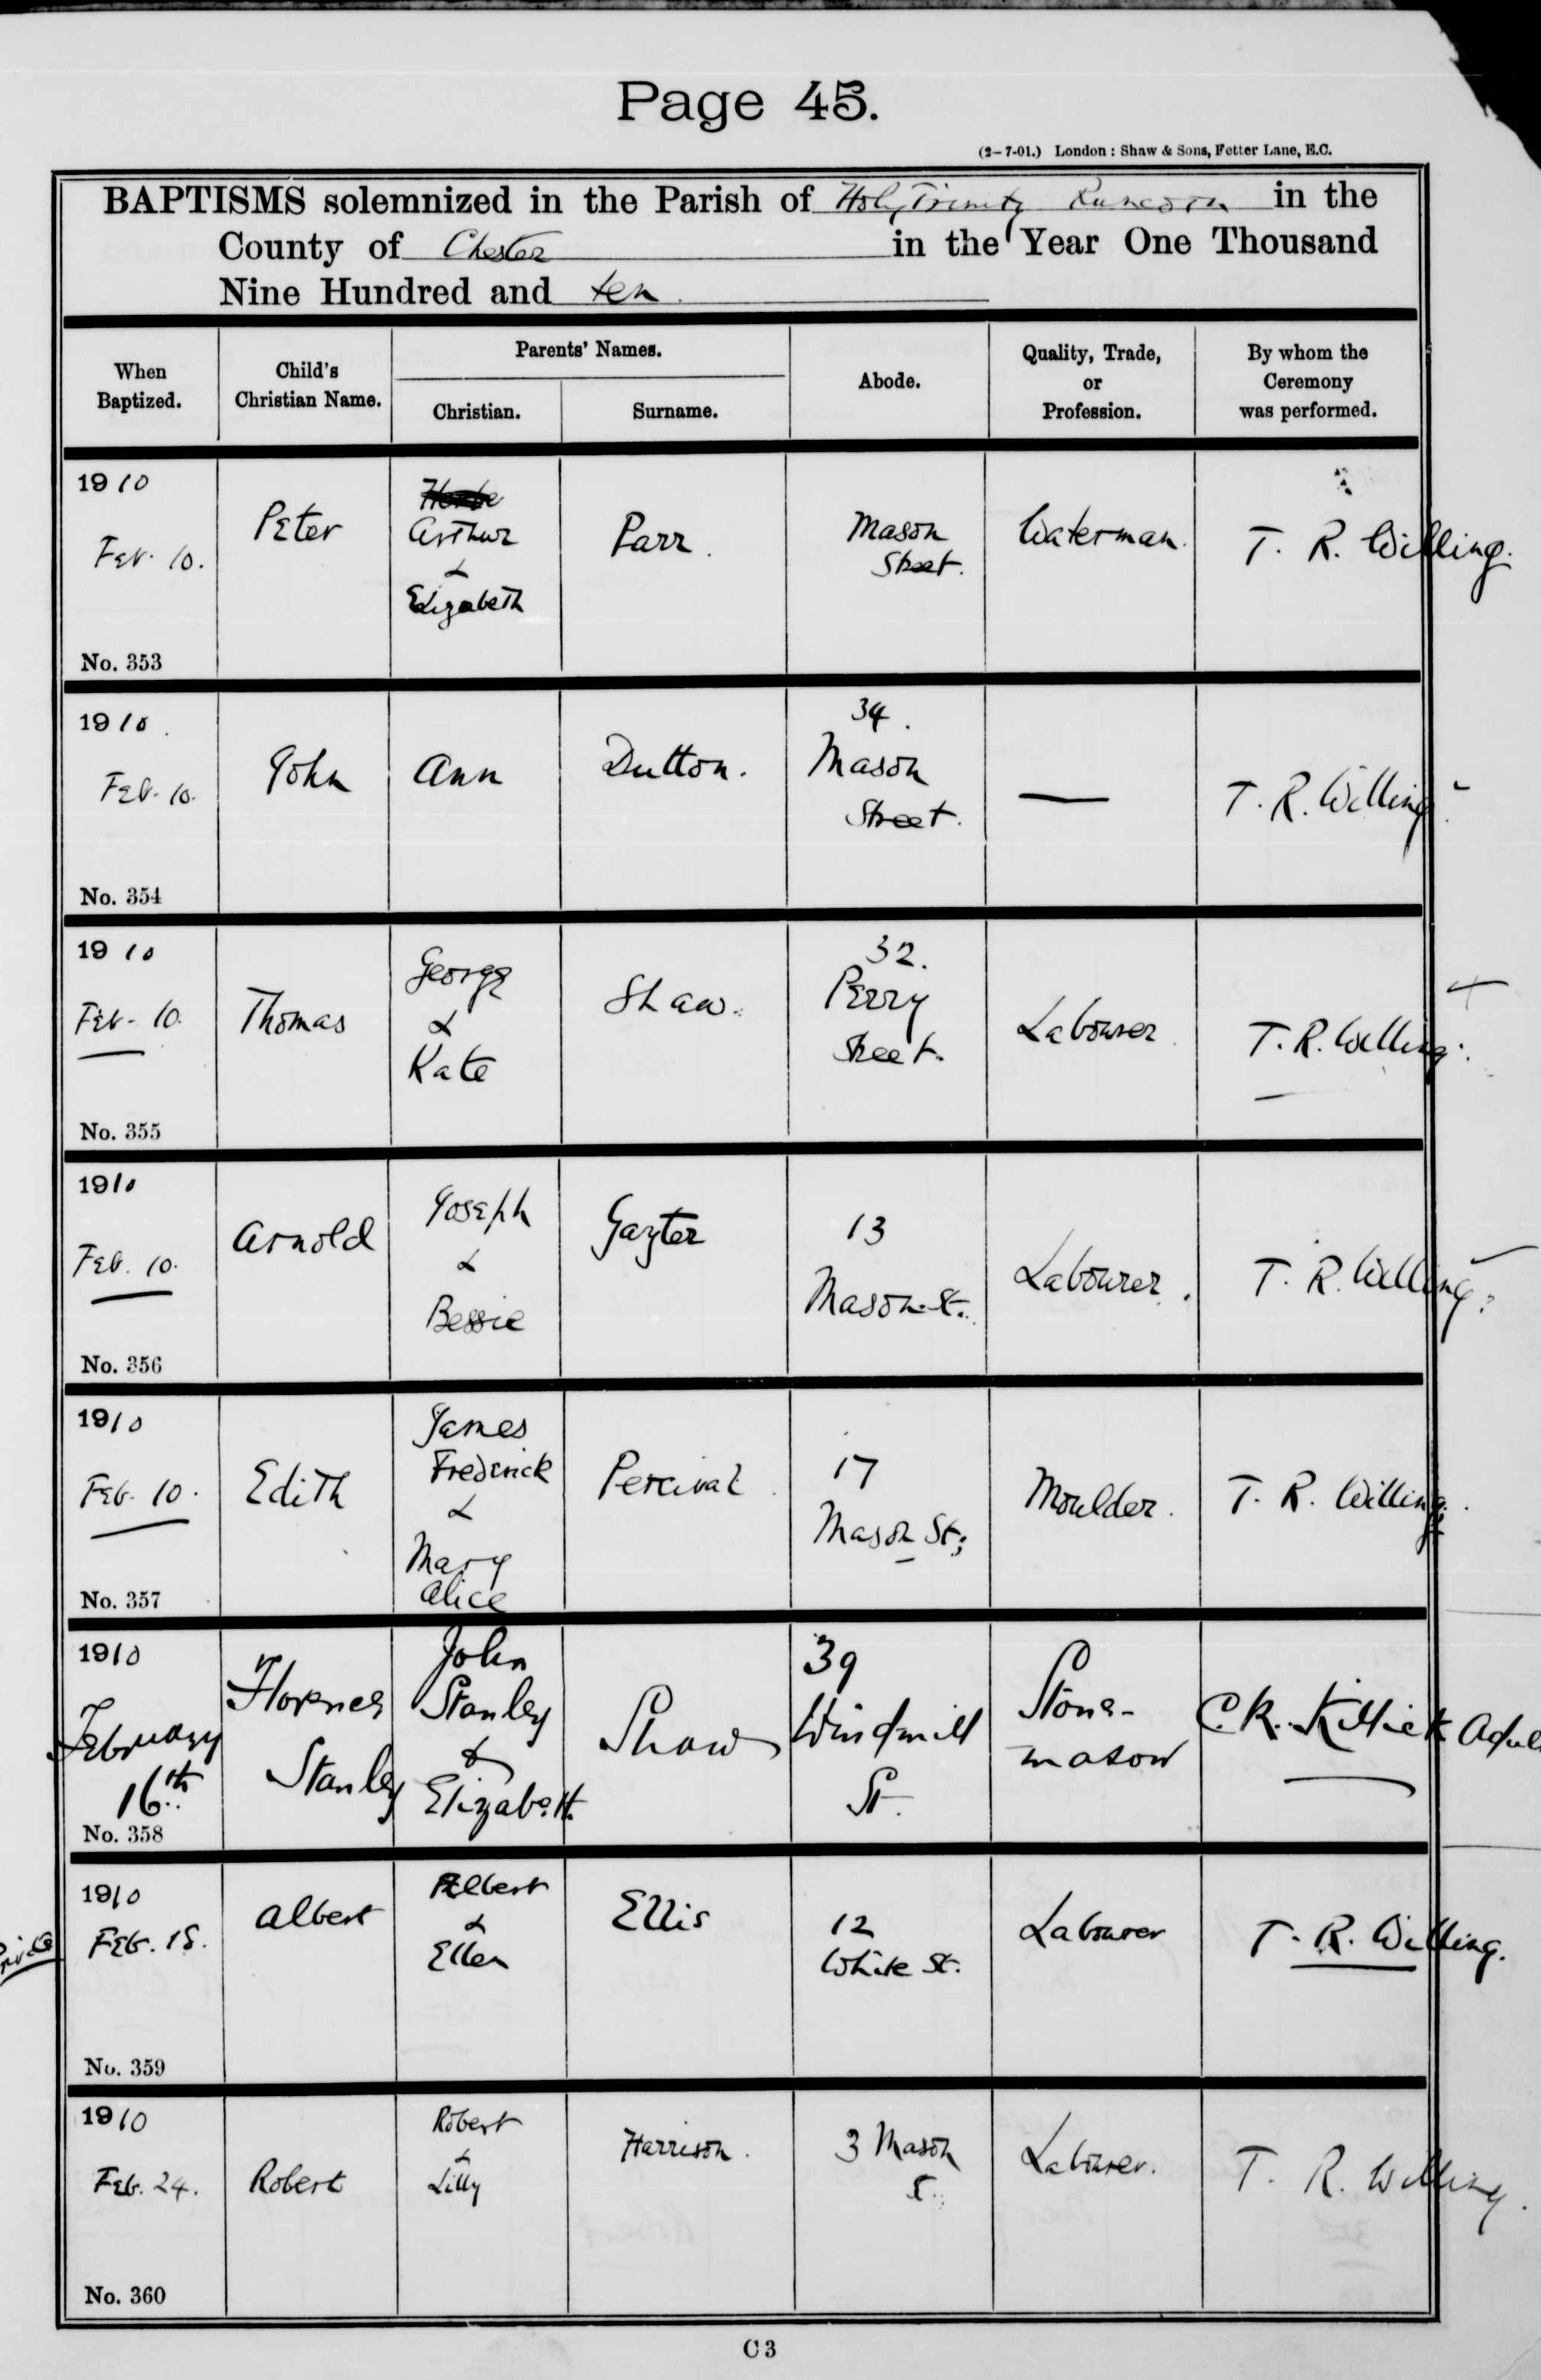 Page 45.
(2-7-01.) London: Shaw & Sons, Fetter Lane, E.C.
BAPTISMS solemnized in the Parish of Holy Trinity Runcorn in the
County of Chester in the Year One Thousand
Nine Hundred and ten.
When Baptized.
Child's Christian Name.
Parents' Names.
Christian.
Surname.
Abode.
Quality, Trade, or Profession.
By whom the Ceremony was performed.
1910
Feb. 10.
No. 353
Peter
Arthur
&
Elizabeth
Parr.
Mason
Street.
Waterman.
T. R. Willing.
1910.
Feb. 10.
No. 354
John
Ann
Dutton.
34.
Mason
Street.
—
T. R. Willing.
1910
Feb. 10.
No. 355
Thomas
George
&
Kate
Shaw.
32.
Perry
Street.
Labourer
T. R. Willing.
1910
Feb. 10.
No. 356
Arnold
Joseph
&
Bessie
13
Mason St.
Labourer.
T. R. Willing.
1910
Feb. 10.
No. 357
Edith
James
Frederick
&
Mary
Alice
Percival
17
Mason St.
Moulder.
T. R. Willing.
1910
February
16th
No. 358
Florence
Stanley
John
Stanley
&
Elizabeth.
Shaw
39
Windmill
St.
Stone-
mason
C. R. Killick
1910
Feb. 18.
No. 359
Albert
Albert
&
Ellen
Ellis
12
White St.
Labourer
T. R. Willing.
1910
Feb. 24.
No. 360
Robert
Robert
&
Lilly
Harrison.
3 Mason
Labourer.
T. R. Willing.
C 3